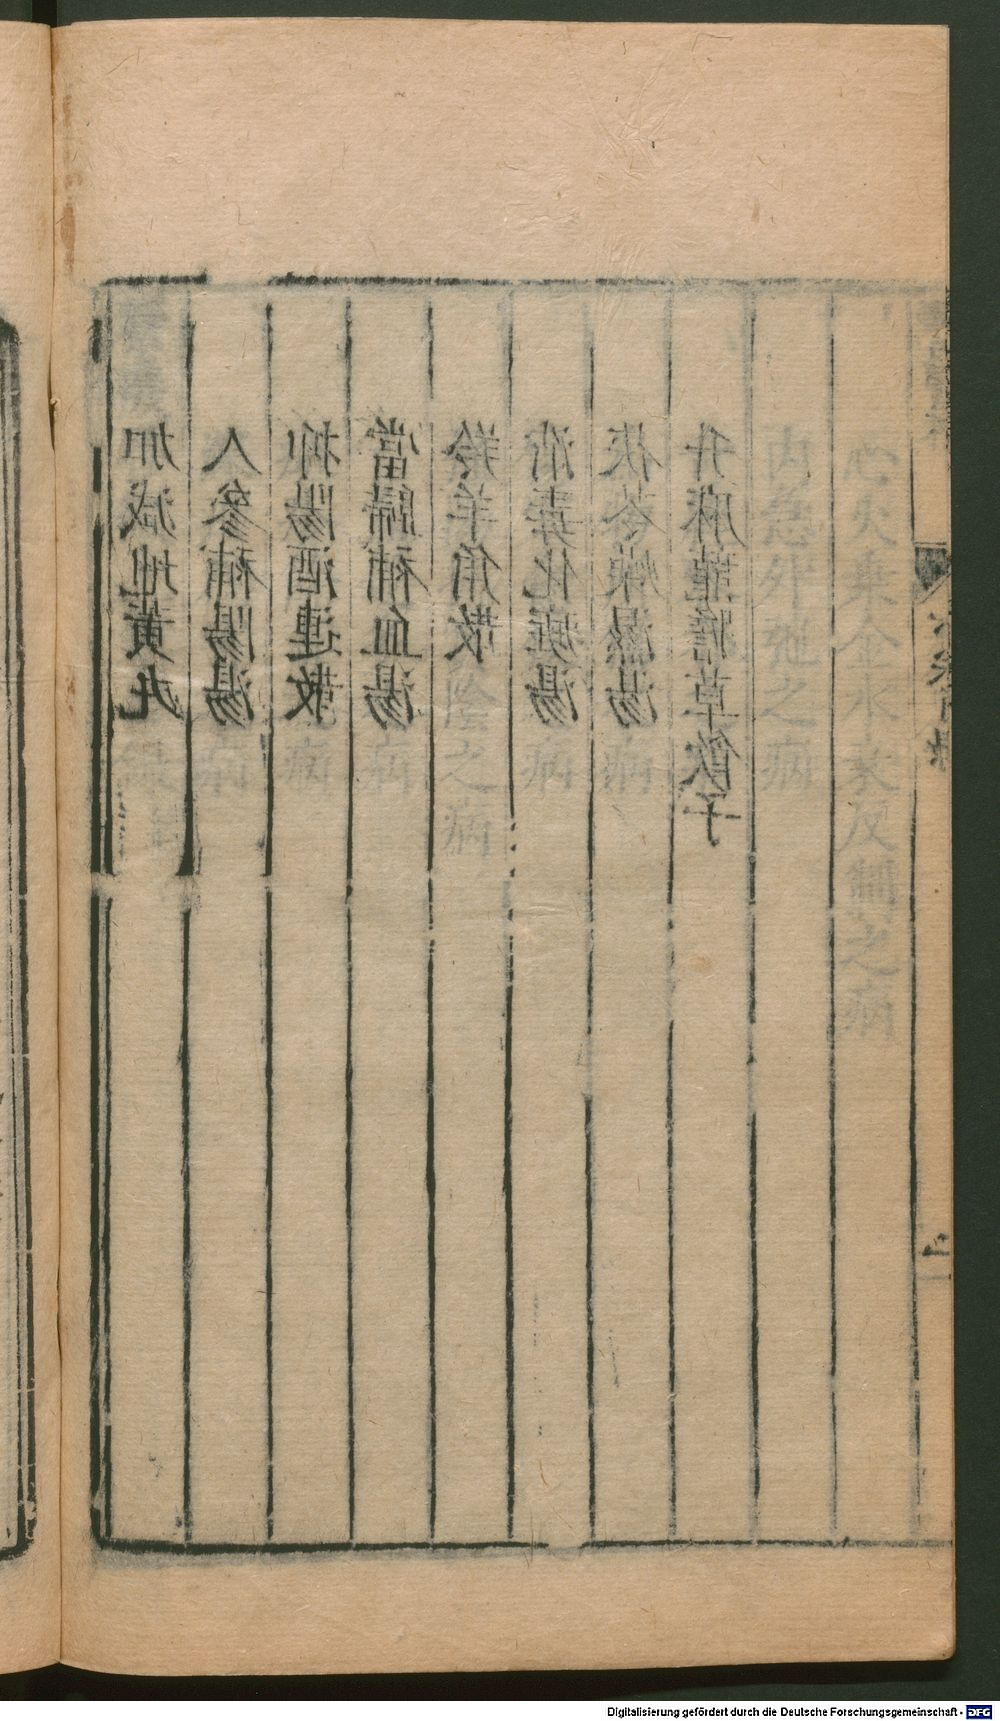 加減地黃丸
人參補陽湯
抑陽酒連散
當歸補血湯
羚羊角散
消毒化癍湯
茯苓燥濕湯
升麻龍膽草飲子
心火乘金水衰反制之病
內急外弛之病
Digitalisierung gefördert durch die Deutsche Forschungsgemeinschaft - DFG